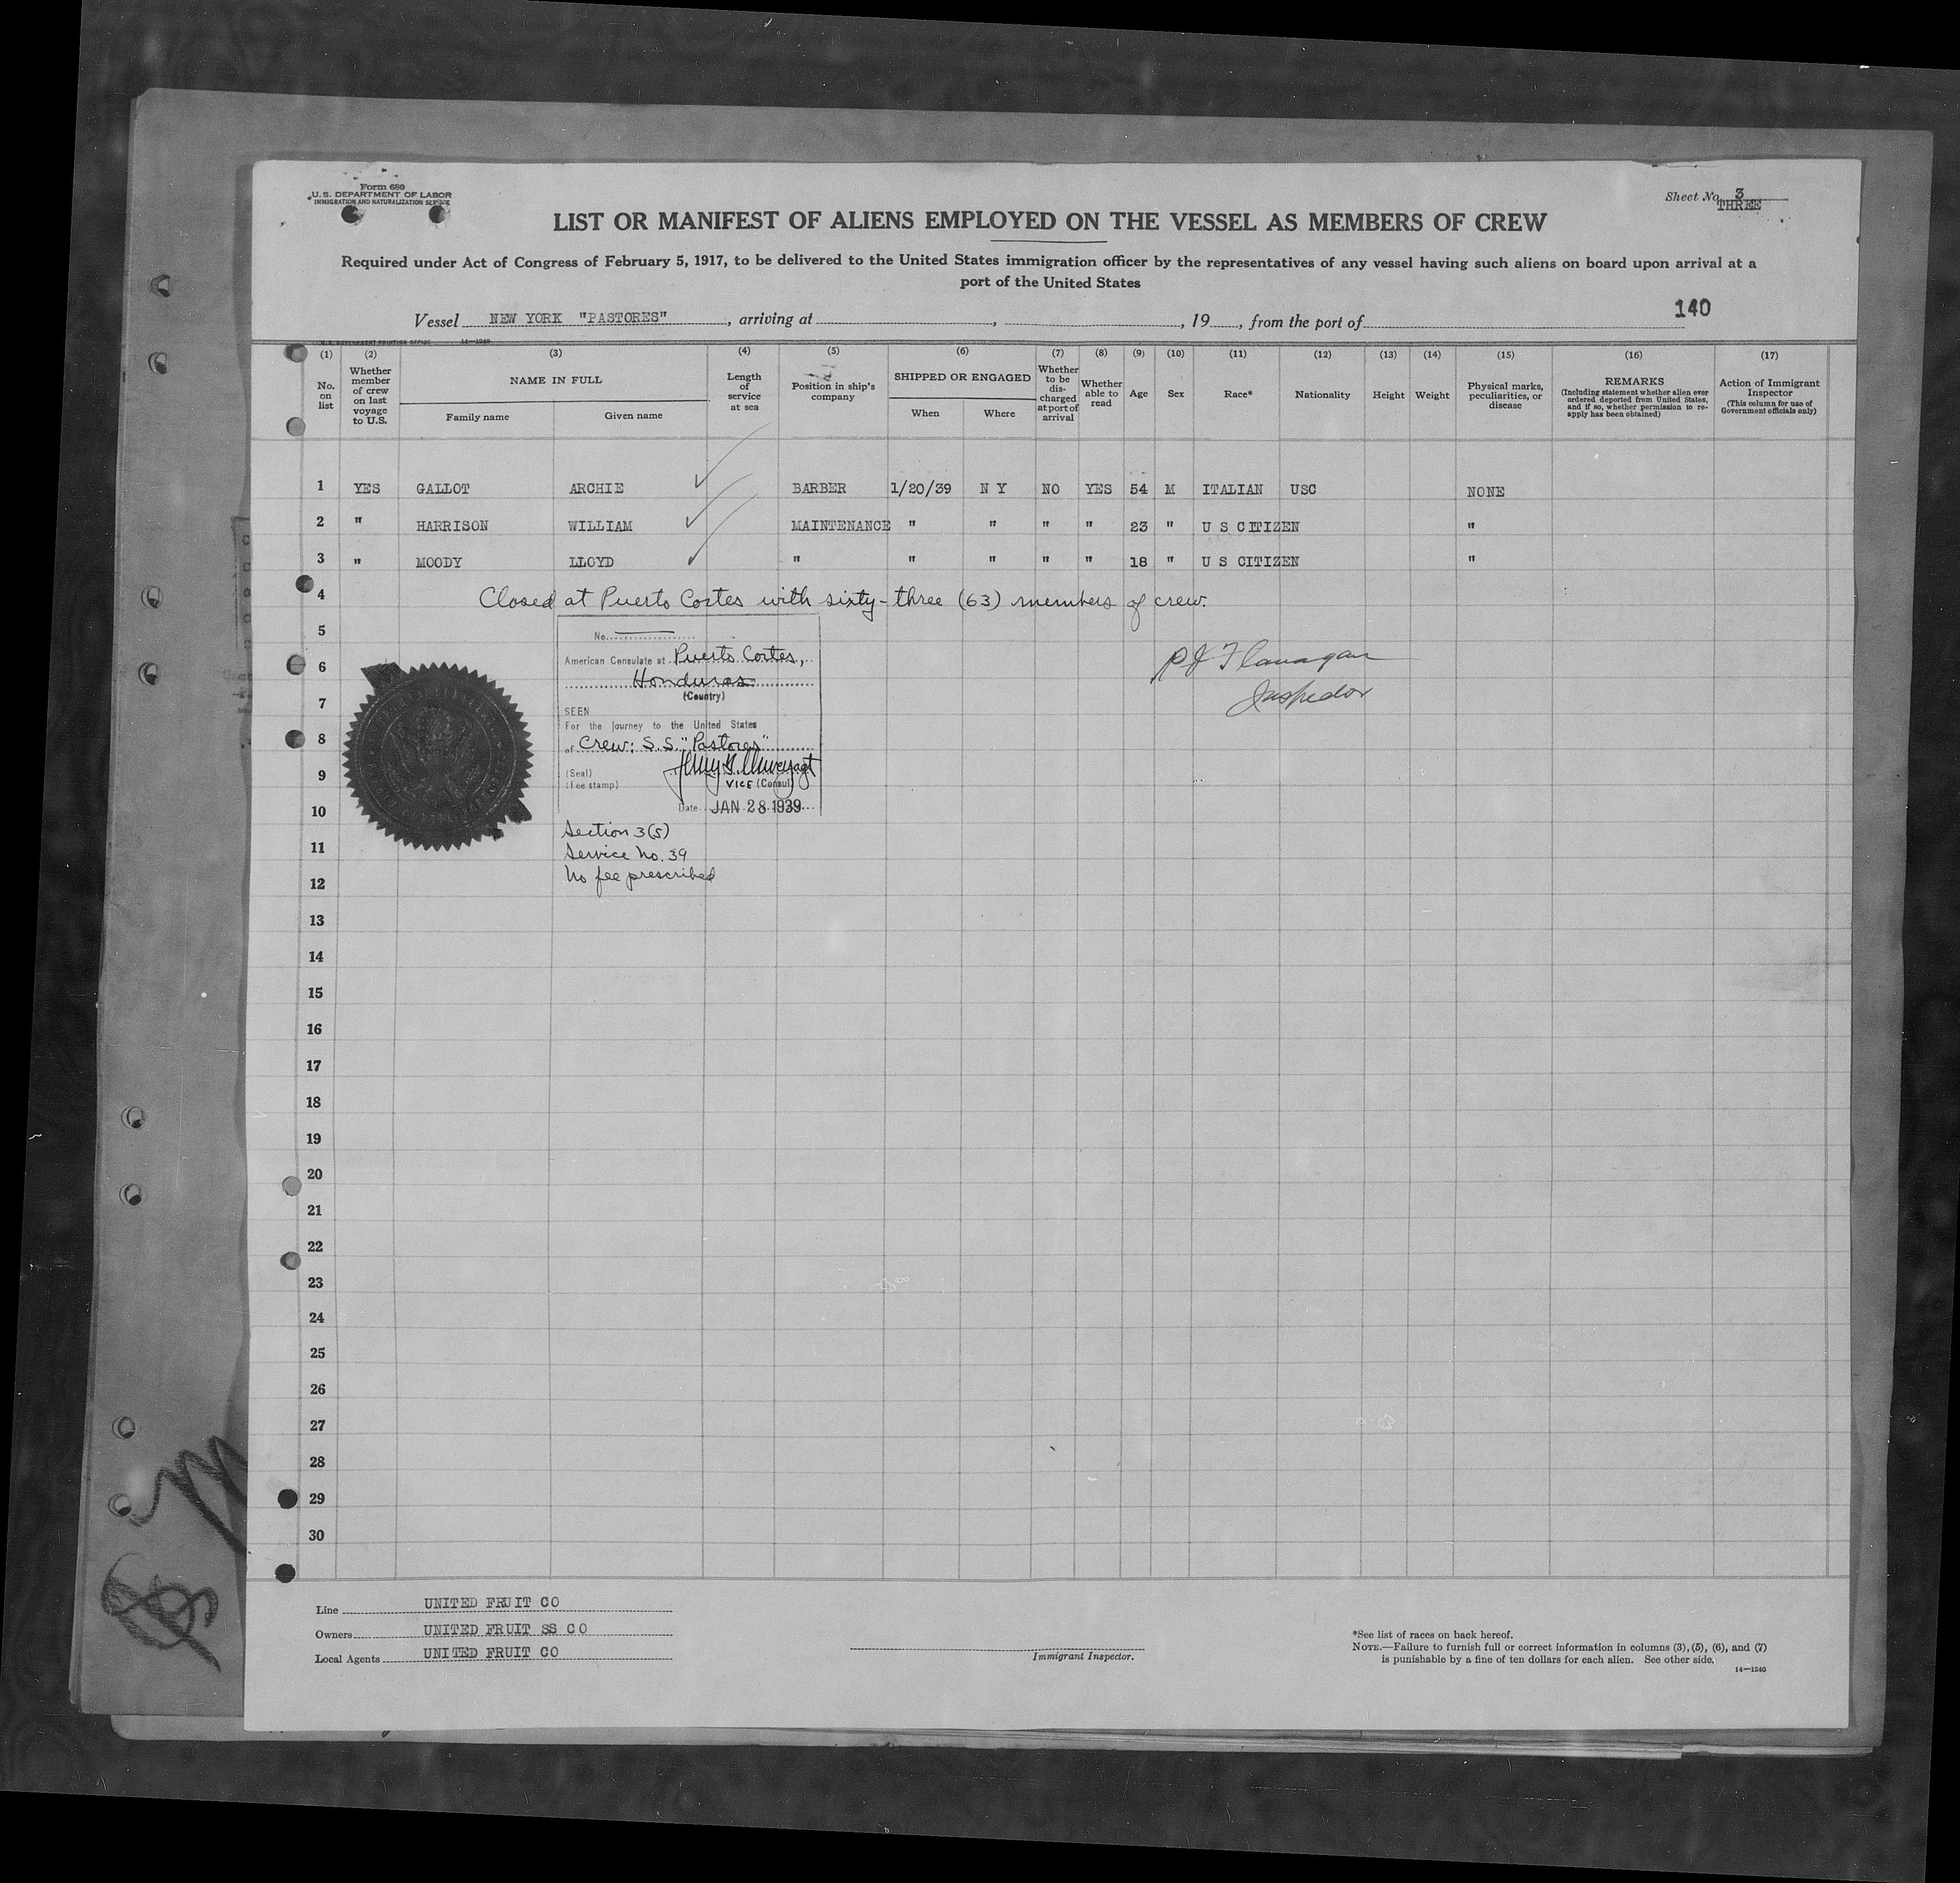 Form 680
U. S. DEPARTMENT OF LABOR
IMMIGRATION AND NATURALIZATION SERVICE
Sheet No. 3
THREE
LIST OR MANIFEST OF ALIENS EMPLOYED ON THE VESSEL AS MEMBERS OF CREW
Required under Act of Congress of February 5, 1917, to be delivered to the United States immigration officer by the representatives of any vessel having such aliens on board upon arrival at a
port of the United States
140
Vessel NEW YORK "PASTORES", arriving at , , 19 , from the port of
U. S. GOVERNMENT PRINTING OFFICE 14—1240
(1) (2) (3) (4) (5) (6) (7) (8) (9) (10) (11) (12) (13) (14) (15) (16) (17)
No. on list
Whether member of crew on last voyage to U.S.
NAME IN FULL
Family name
Given name
Length of service at sea
Position in ship's company
SHIPPED OR ENGAGED
When
Where
Whether to be discharged at port of arrival
Whether able to read
Age
Sex
Race*
Nationality
Height
Weight
Physical marks, peculiarities, or disease
REMARKS
(Including statement whether alien ever ordered deported from United States, and if so, whether permission to re-apply has been obtained)
Action of Immigrant Inspector
(This column for use of Government officials only)
1 YES GALLOT ARCHIE BARBER 1/20/39 N Y NO YES 54 M ITALIAN USC NONE
2 " HARRISON WILLIAM MAINTENANCE " " " " 23 " U S CITIZEN "
3 " MOODY LLOYD " " " " " 18 " U S CITIZEN "
4 Closed at Puerto Cortes with sixty-three (63) members of crew.
5
No.
6
American Consulate at Puerto Cortes,
Honduras
(Country)
P J Flanagan
Inspector
7
SEEN
For the journey to the United States
8
of Crew: S.S. "Pastores"
9
(Seal)
(Fee stamp)
VICE (Consul)
10
Date JAN 28 1939
Section 3(5)
11
Service No. 39
12
No fee prescribed
13
14
15
16
17
18
19
20
21
22
23
24
25
26
27
28
29
30
Line UNITED FRUIT CO
Owners UNITED FRUIT SS CO
Local Agents UNITED FRUIT CO
Immigrant Inspector.
*See list of races on back hereof.
NOTE.—Failure to furnish full or correct information in columns (3), (5), (6), and (7)
is punishable by a fine of ten dollars for each alien. See other side.
14—1240